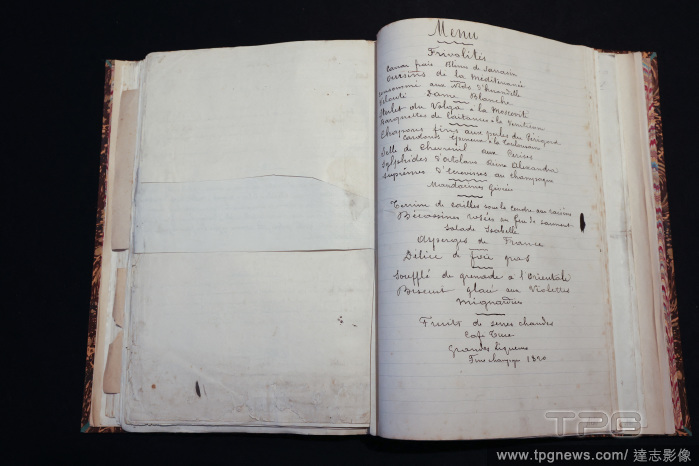 Menu
Frivolités
Caviar frais Blinis de Sarrasin
Oursins de la Méditerranée
Consommé aux Nids d'hirondelle
Velouté Dame Blanche
Sterlet du Volga à la Moscovite
Barquettes de Laitances à la Vénitienne
Chapons fins aux perles du Périgord
Cardons épineux à la Toulousaine
Selle de Chevreuil aux Cerises
Sylphides d'ortolans Reine Alexandra
Suprêmes d'Ecrevisses au champagne
Mandarines Givrées
Terrine de cailles sous la cendre aux raisins
Bécassines rosées au feu de sarment
Salade Isabelle
Asperges de France
Délice de foie gras
Soufflé de grenade à l'Orientale
Biscuit glacé aux Violettes
Mignardises
Fruits de serres chaudes
Café Turc
Grandes liqueurs
Fine champagne
TPG
www.tpgnews.com/ 達志影像